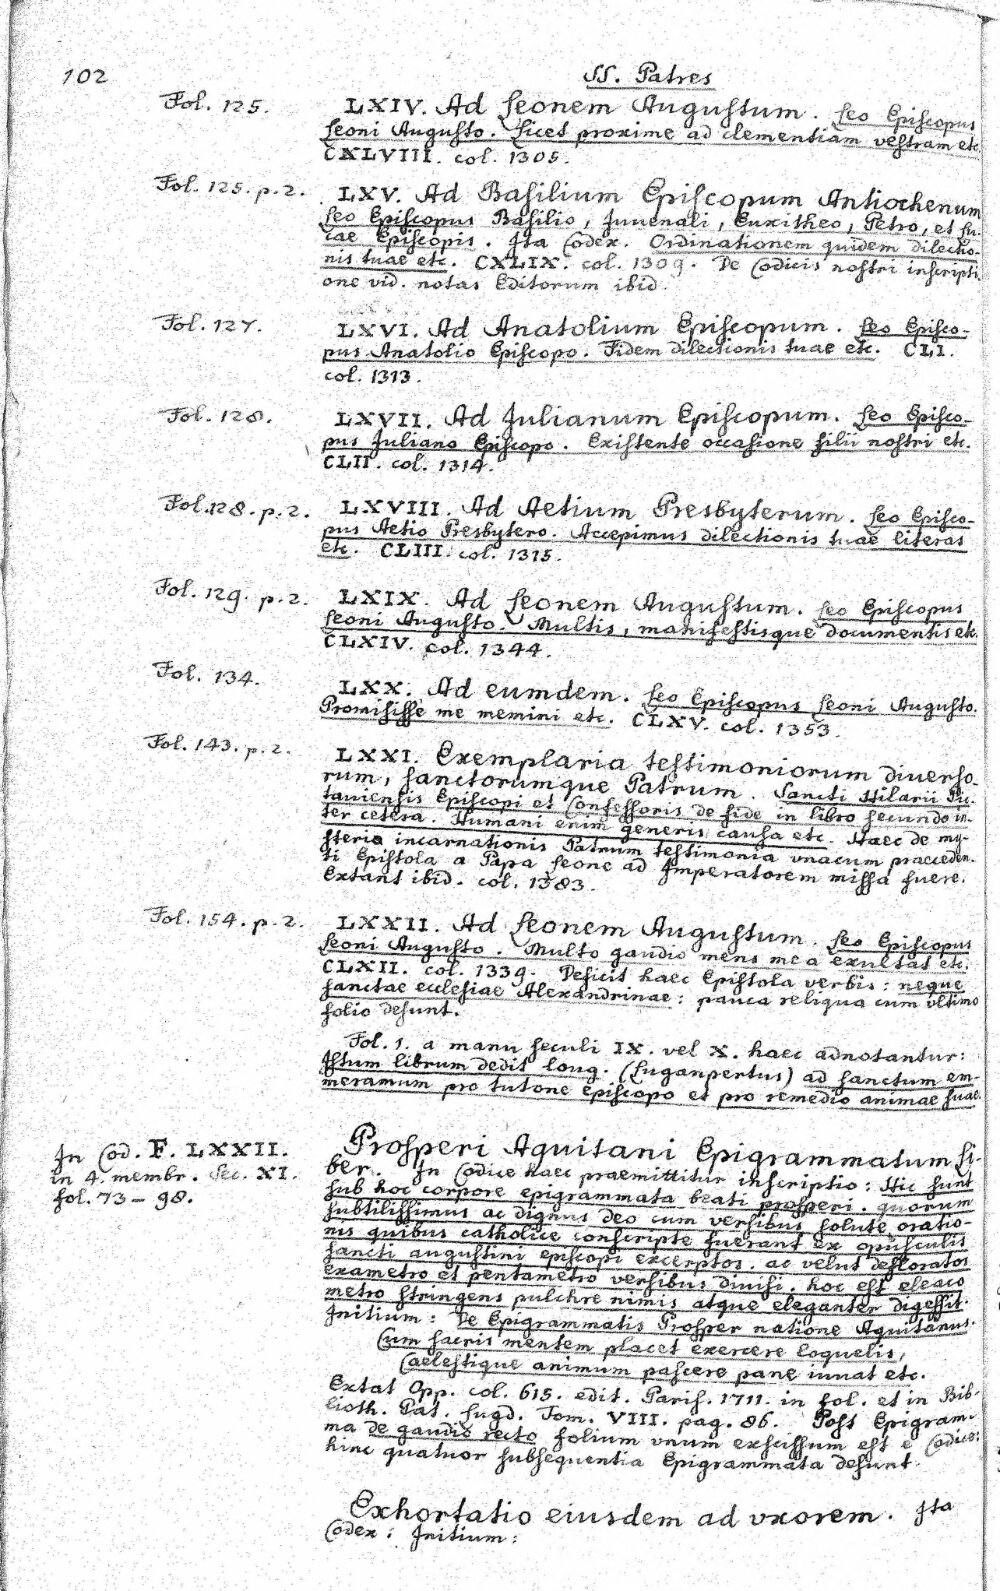 102
SS. Patres
Fol. 125.
LXIV. Ad Leonem Augustum. Leo Episcopus
Leoni Augusto. Licet proxime ad clementiam vestram etc.
CXLVIII. col. 1305.
Fol. 125. p. 2.
LXV. Ad Basilium Episcopum Antiochenum
Leo Episcopus Basilio, Juvenali, Euxitheo, Petro, et Lu-
cae Episcopis. Ita Codex. Ordinationem quidem dilectio-
nis tuae etc. CXLIX. col. 1309. De Codicis nostri inscripti-
one vid. notas Editorum ibid.
Fol. 127.
LXVI. Ad Anatolium Episcopum. Leo Episco-
pus Anatolio Episcopo. Fidem dilectionis tuae etc. CLI.
col. 1313.
Fol. 128.
LXVII. Ad Julianum Episcopum. Leo Episco-
pus Juliano Episcopo. Existente occasione filii nostri etc.
CLII. col. 1314.
Fol. 128. p. 2.
LXVIII. Ad Aetium Presbyterum. Leo Episco-
pus Aetio Presbytero. Accepimus dilectionis tuae literas
etc. CLIII. col. 1315.
Fol. 129. p. 2.
LXIX. Ad Leonem Augustum. Leo Episcopus
Leoni Augusto. Multis, manifestisque documentis etc.
CLXIV. col. 1344.
Fol. 134.
LXX. Ad eumdem. Leo Episcopus Leoni Augusto.
Promisisse me memini etc. CLXV. col. 1353.
Fol. 143. p. 2.
LXXI. Exemplaria testimoniorum diverso-
rum, sanctorumque Patrum. Sancti Hilarii Pic-
taviensis Episcopi et Confessoris de fide in libro secundo in-
ter cetera. Humani enim generis causa etc. Haec de my-
steria incarnationis Patrum testimonia vnacum praeceden-
ti Epistola a Papa Leone ad Imperatorem missa fuere.
Extant ibid. col. 1383.
Fol. 154. p. 2.
LXXII. Ad Leonem Augustum. Leo Episcopus
Leoni Augusto. Multo gaudio mens mea exultat etc.
CLXII. col. 1339. Deficit haec Epistola verbis: neque
sanctae ecclesiae Alexandrinae: pauca reliqua cum vltimo
folio desunt.
Fol. 1. a manu seculi IX. vel X. haec adnotantur:
Istum librum dedit loug. (Luganpertus) ad sanctum em-
meramum pro tutone episcopo et pro remedio animae suae.
In Cod. F. LXXII.
in 4. membr. Sec. XI.
fol. 73-98.
Prosperi Aquitani Epigrammatum Li-
ber. In Codice haec praemittitur inscriptio: Hic sunt
sub hoc corpore epigrammata beati prosperi. quorum
subtilissimus ac dignus deo cum versibus solute oratio-
nis quibus catholice conscripte fuerant ex opusculis
sancti augustini episcopi excerptos. ac velut defloratos
exametro et pentametro versibus divisi. hoc est eleaco
metro stringens pulchre nimis atque eleganter digessit.
Initium: De Epigrammatis Prosper natione Aquitanus.
Cum sacris mentem placet exercere loquelis,
Caelestique animum pascere pane iuuat etc.
Extat Opp. col. 615. edit. Paris. 1711. in fol. et in Bib-
lioth. Pat. Lugd. Tom. VIII. pag. 86. Post Epigram-
ma de gaudio recto folium vnum exscissum est e Codice:
hinc quatuor subsequentia Epigrammata desunt.
Exhortatio eiusdem ad vxorem. Ita
Codex: Initium: